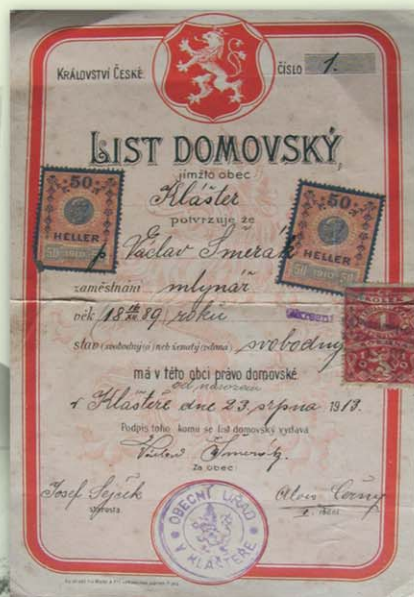 KRÁLOVSTVÍ ČESKÉ.
ČÍSLO 1.
LIST DOMOVSKÝ,
jímžto obec
Klášter
potvrzuje že
50
HELLER
50 1910 50
50
HELLER
50 1910 50
Václav Šmerák
zaměstnání mlynář
věk (18 89) roků
stav (svobodný(á) neb ženatý, vdaná) svobodný
má v této obci právo domovské.
od narození
v Klášteře dne 23. srpna 1913.
Podpis toho, komu se list domovský vydává
Václav Šmerák.
Za obec:
Josef
starosta
Alois Černý
I. radní
OBECNÍ ÚŘAD
V KLÁŠTEŘE